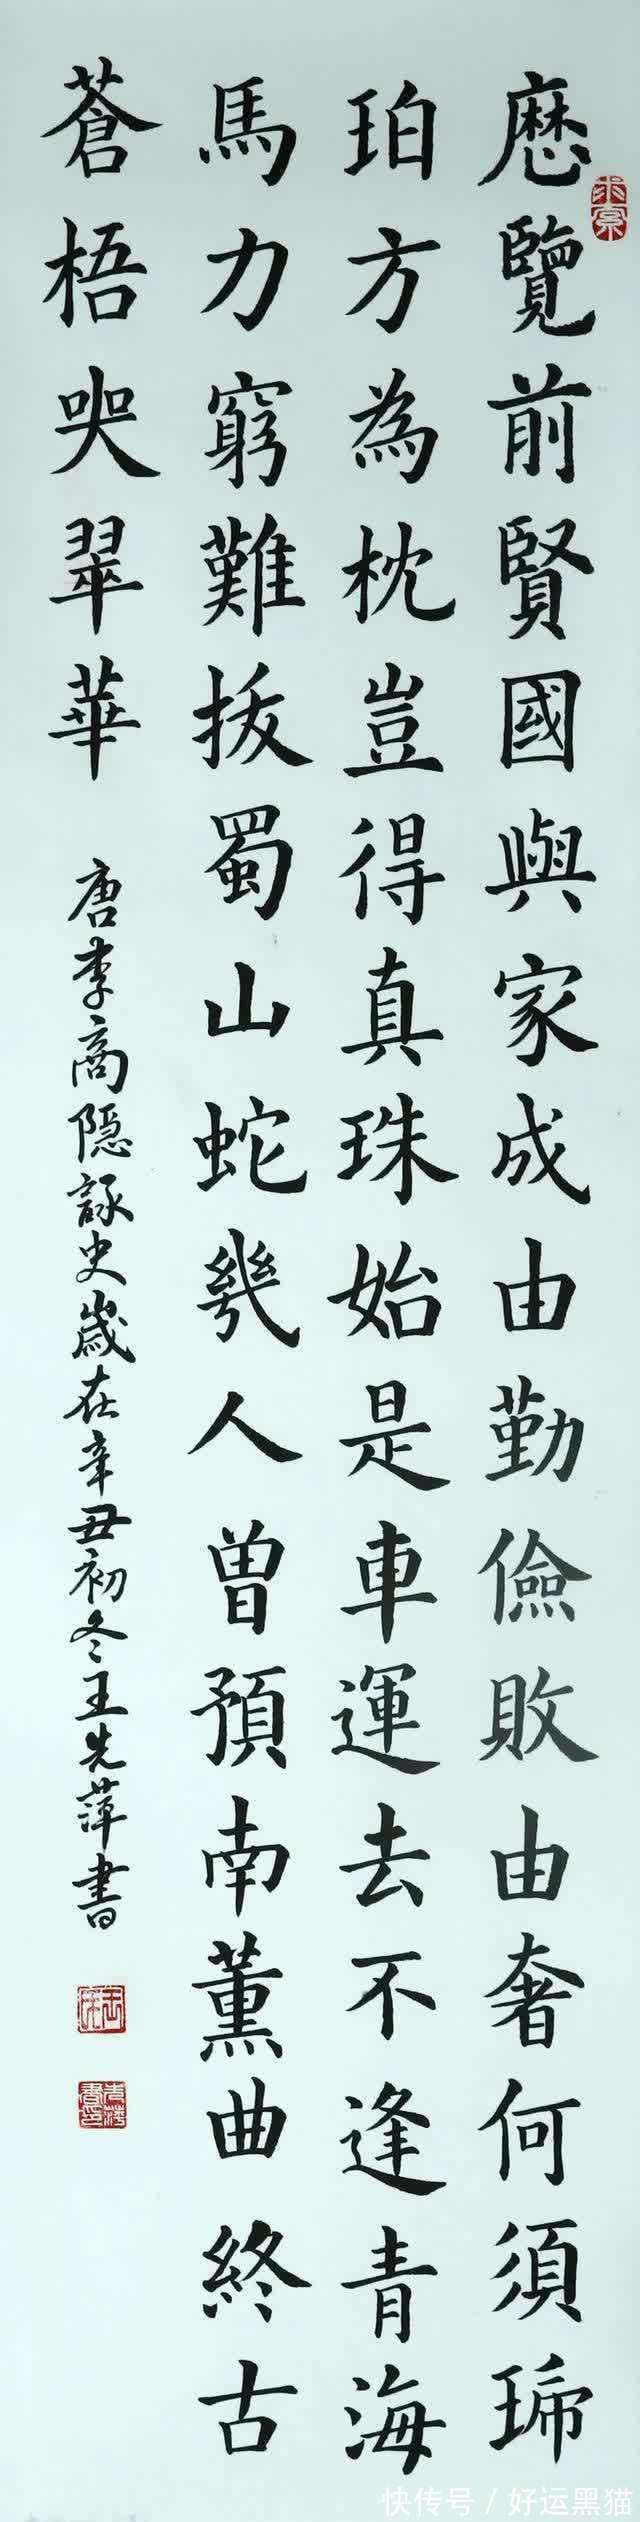 歷覽前賢國與家成由勤儉敗由奢何須琥
珀方為枕豈得真珠始是車運去不逢青海
馬力窮難拔蜀山蛇幾人曾預南薰曲終古
蒼梧哭翠華
唐李商隱詠史歲在辛丑初冬王先萍書
求索
快传号/好运黑猫